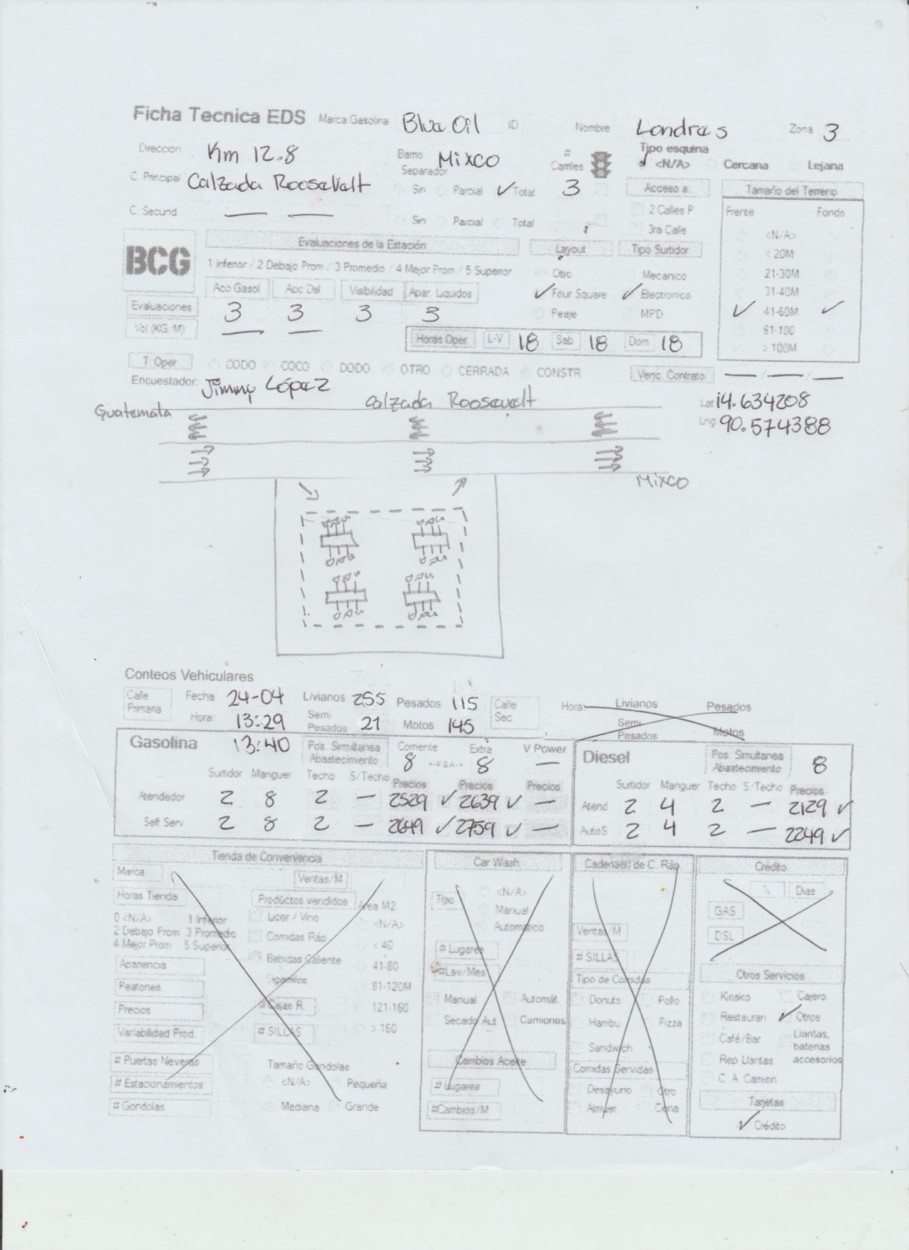 Ficha Tecnica EDS Marca Gasolina Blue Oil ID Nombre Londres Zona 3
Direccion Km 12.8 Barrio Mixco # Carriles 3 Tipo esquina ✓ <N/A> Cercana Lejana
C. Principal Calzada Roosevelt Separador Sin Parcial ✓ Total Acceso a: Tamaño del Terreno
C. Secund. — — Sin Parcial Total 2 Calles P Frente Fondo
3ra Calle <N/A>
BCG Evaluaciones de la Estación Layout Tipo Surtidor < 20M
1 Inferior / 2 Debajo Prom / 3 Promedio / 4 Mejor Prom / 5 Superior Otro Mecanico 21-30M
Acc Gasol Acc Dsl Visibilidad Apar. Liquidos ✓ Four Square ✓ Electronico 31-40M
Evaluaciones 3 3 3 3 Peaje MPD ✓ 41-60M ✓
Vol (KG/M) — — 61-100
Horas Oper L-V 18 Sab 18 Dom 18 > 100M
T. Oper CODO COCO DODO OTRO CERRADA CONSTR Venc. Contrato —/—/—
Encuestador: Jimmy López
Guatemala Calzada Roosevelt Lat 14.634208
Lng 90.574388
Mixco
Conteos Vehiculares
Calle Primaria Fecha 24-04 Livianos 255 Pesados 115 Calle Sec Hora: Livianos Pesados
Hora: 13:29 Semi Pesados 21 Motos 145 Semi Pesados Motos
Gasolina 13:40 Pos. Simultanea Abastecimiento Corriente 8 Extra 8 V Power — Diesel Pos. Simultanea Abastecimiento 8
Surtidor Manguer Techo S/Techo Precios Precios Precios Surtidor Manguer Techo S/Techo Precios
Atendedor 2 8 2 — 2529 ✓ 2639 ✓ — Atend 2 4 2 — 2129 ✓
Self Serv 2 8 2 — 2649 ✓ 2759 ✓ — AutoS 2 4 2 — 2249 ✓
Tienda de Conveniencia Car Wash Cadena(s) de C. Ráp Crédito
Marca Ventas/M <N/A> % Dias
Horas Tienda Productos vendidos Area M2 Tipo Manual GAS
0 <N/A> 1 Inferior Licor / Vino <N/A> Automático Ventas/M DSL
2 Debajo Prom 3 Promedio Comidas Ráp < 40 # Lugares # SILLAS
4 Mejor Prom 5 Superior Bebidas Caliente 41-80 #Lav/Mes Tipo de Comidas Otros Servicios
Apariencia Cigarrillos 81-120M Manual Automát. Donuts Pollo Kosko Cajero
Peatones # Cajas R. 121-160 Secado Aut Camiones Hambu Pizza Restauran ✓ Otros
Precios # SILLAS > 160 Sandwich Café/Bar Llantas, baterias accesorios
Variabilidad Prod. Cambios Aceite Comidas Servidas Rep Llantas
# Puertas Neveras Tamaño Gondolas # Lugares Desayuno Otro C. A. Camion
# Estacionamientos <N/A> Pequeña #Cambios/M Almuer Cena Tarjetas
# Gondolas Mediana Grande ✓ Crédito